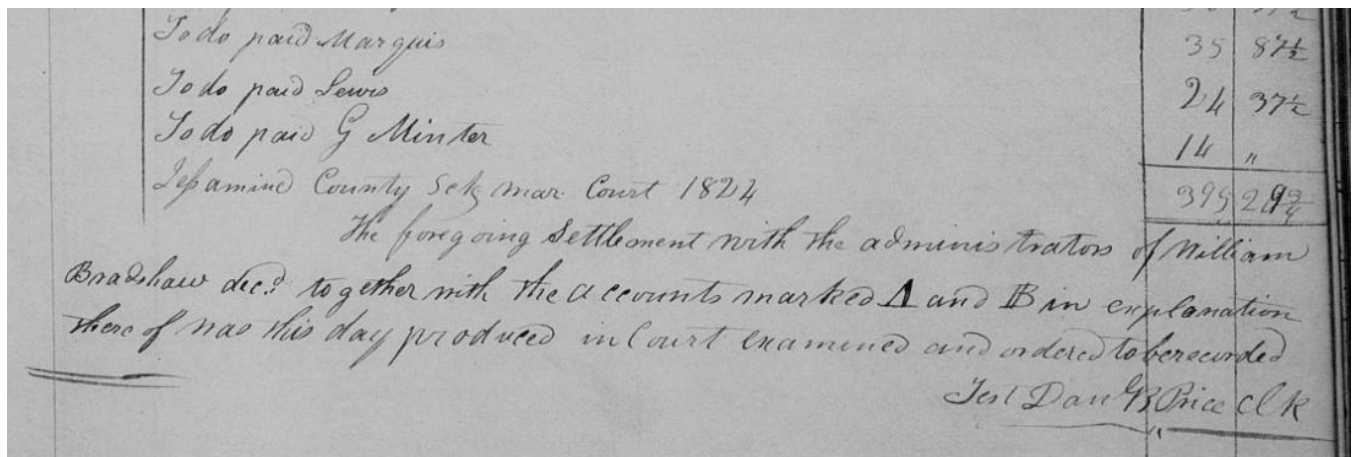 To do paid Marquis 35 87½
To do paid Lewis 24 37½
To do paid G Minter 14 "
Jessamine County Sct mar Court 1824 395 29¾
The foregoing Settlement with the administrators of William
Bradshaw decd together with the accounts marked A and B in explanation
there of was this day produced in Court examined and ordered to be recorded
Test Dan B Price Clk